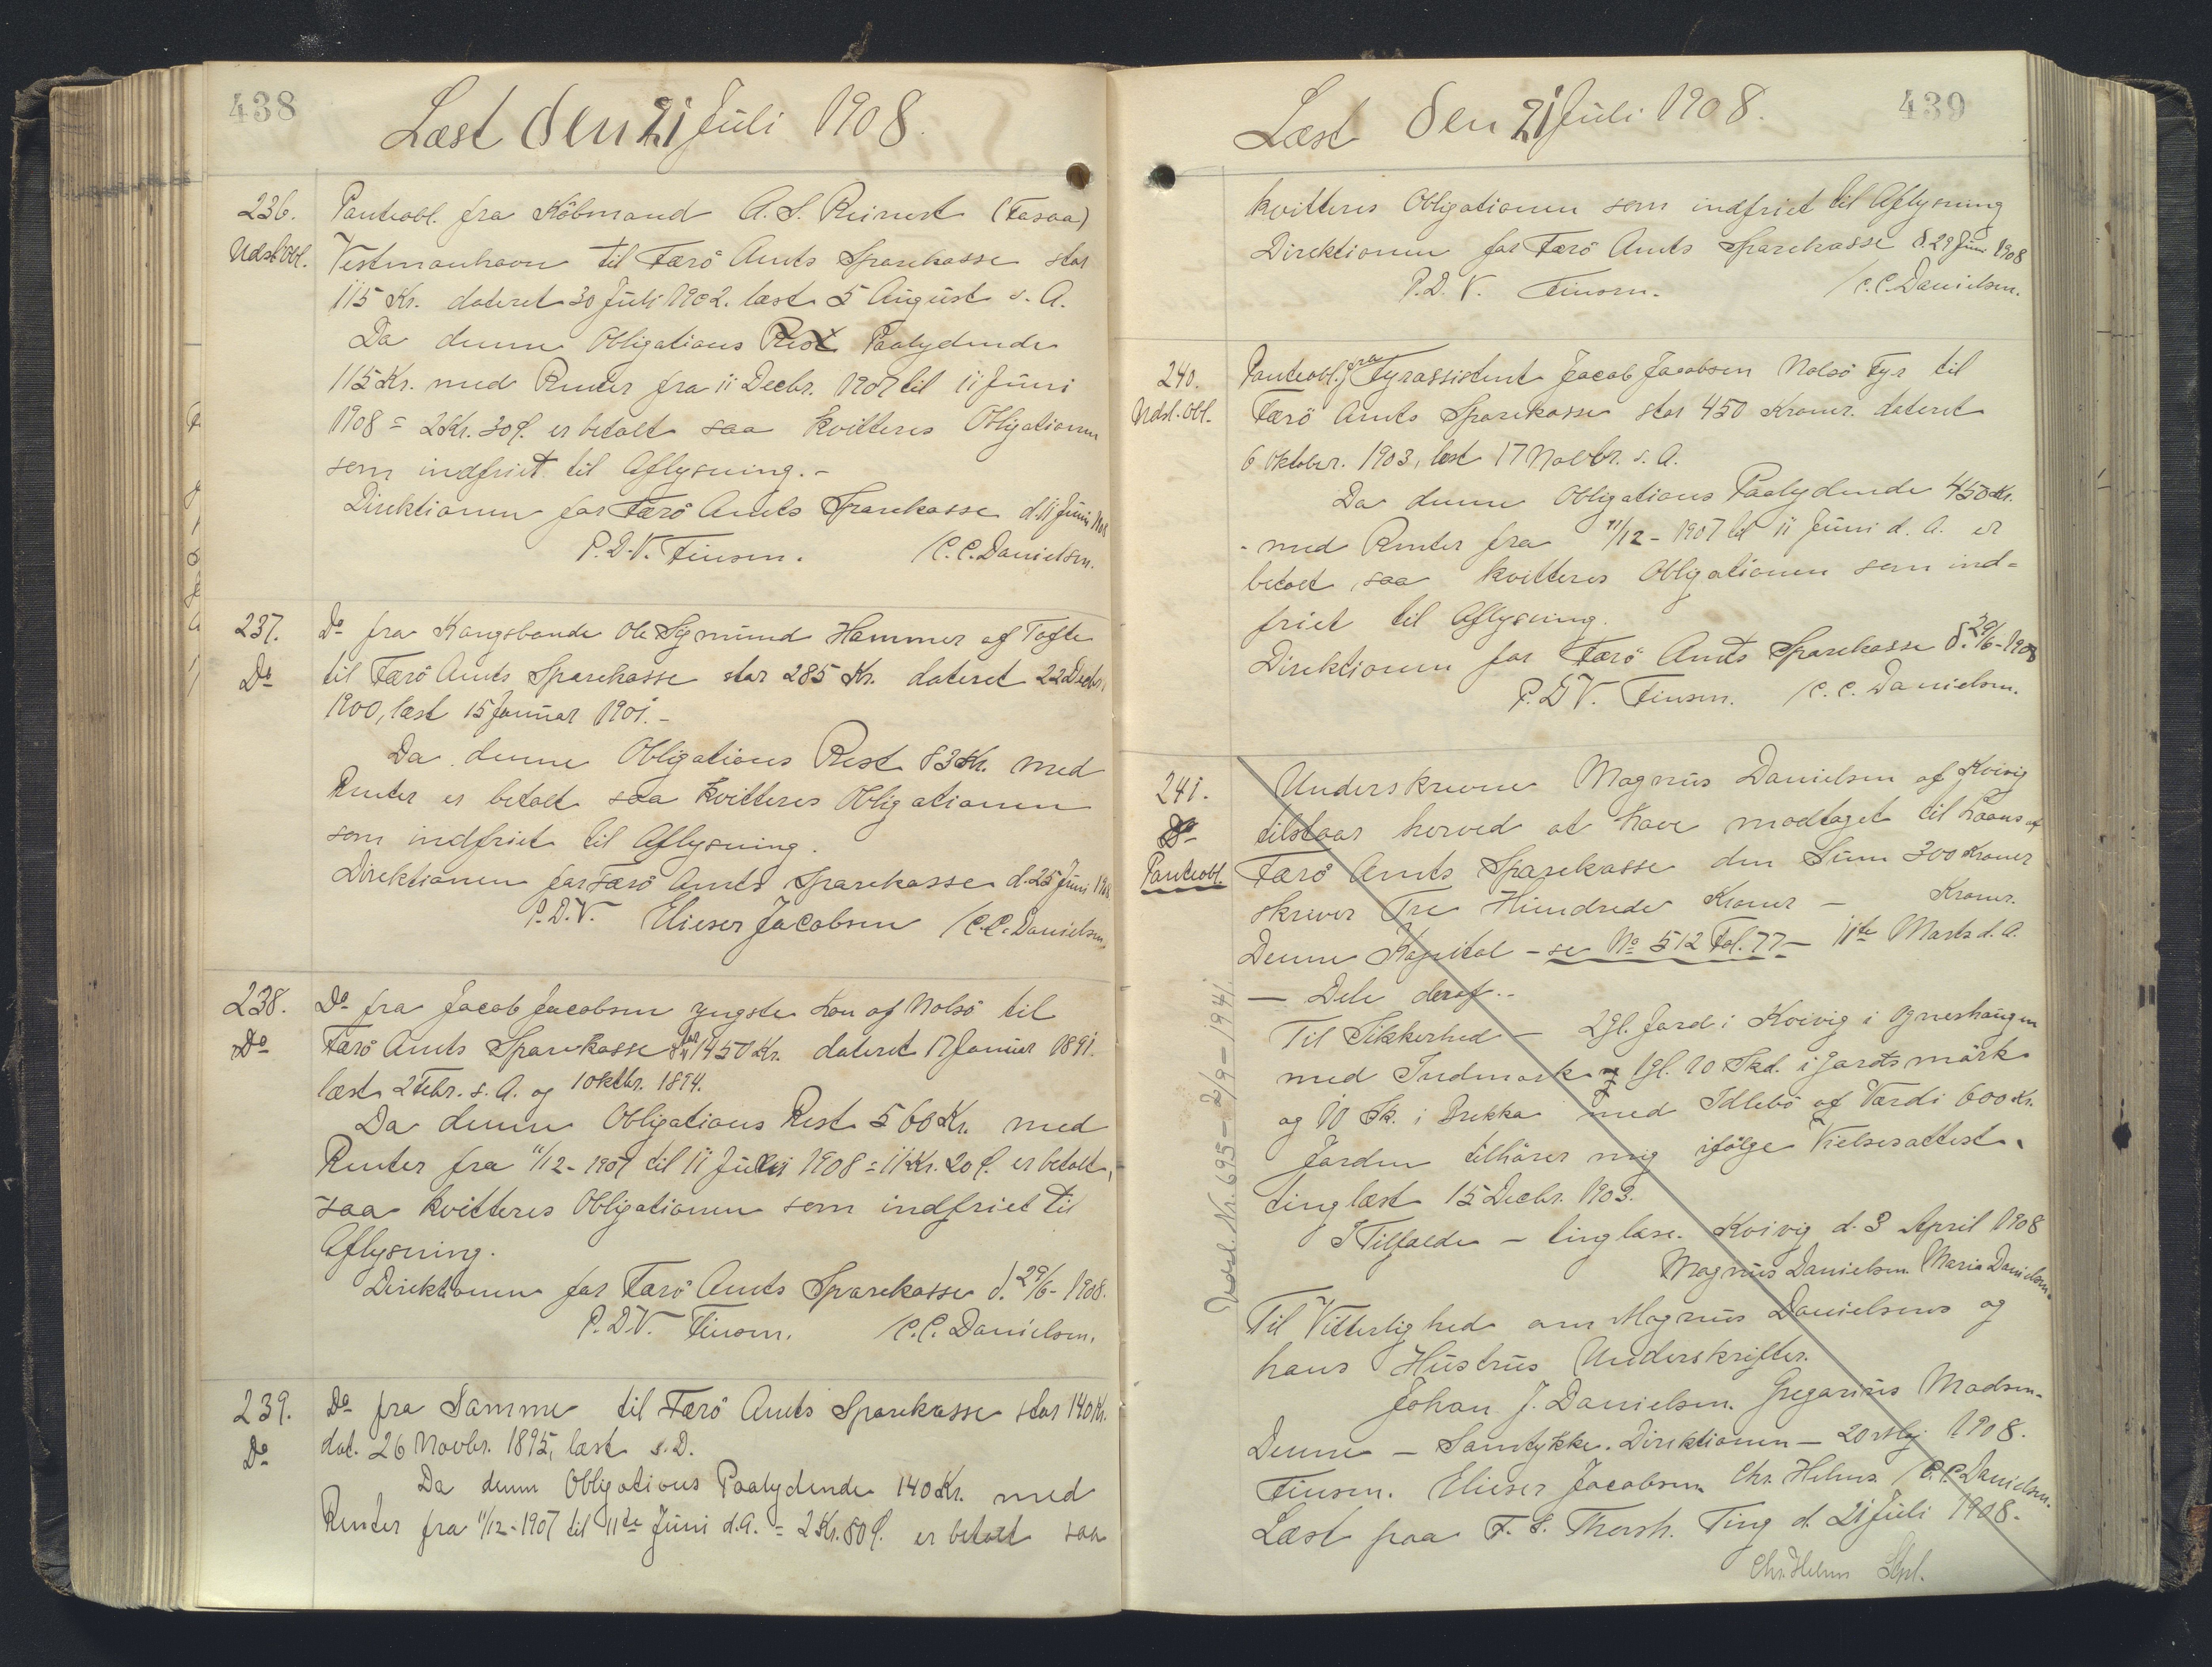 438
Læst den 21 Juli 1908.
236. Panteobl. fra Köbmand A. S. Reinert (Fasaa)
Udsl. Obl. Vestmanhavn til Færö Amts Sparekasse stor
115 Kr. dateret 30 Juli 1902. læst 5 August s. A.
Da denne Obligations Paalydende
115 Kr. med Renter fra 11 Decbr. 1907 til 11 Juni
1908 = 2 Kr. 30 Ø. er betalt saa kvitteres Obligationen
som indfriet til Aflysning.-
Direktionen for Færö Amts Sparekasse d. 11 Juni 1908
P.D.V. Finsen. /C.C. Danielsen.
237. Do fra Kongsbonde Ole Sigmund Hammer af Tofte
Do til Færö Amts Sparekasse stor 285 Kr. dateret 22 Decbr.
1900, læst 15 Januar 1901.-
Da denne Obligations Rest 83 Kr. med
Renter er betalt saa kvitteres Obligationen
som indfriet til Aflysning.
Direktionen for Færö Amts Sparekasse d. 25 Juni 1908.
P.D.V. Elieser Jacobsen /C.C. Danielsen.
238. Do fra Jacob Jacobsen yngste Søn af Nolsö til
Do Færö Amts Sparekasse stor 1450 Kr. dateret 17 Januar 1891.
læst 2 Febr. s. A. og 1 Oktbr. 1894.
Da denne Obligations Rest 560 Kr. med
Renter fra 11/12-1907 til 11 Juni 1908 = 11 Kr. 20 Ø. er betalt,
saa kvitteres Obligationen som indfriet til
Aflysning.
Direktionen for Færö Amts Sparekasse d. 29/6-1908.
P.D.V. Finsen. /C.C. Danielsen.
239. Do fra Samme til Færö Amts Sparekasse stor 140 Kr.
Do dat. 26 Novbr. 1895, læst s. D.
Da denne Obligations Paalydende 140 Kr. med
Renter fra 11/12-1907 til 11te Juni d.A. = 2 Kr. 80 Ø. er betalt saa
439
Læst den 21 Juli 1908.
kvitteres Obligationen som indfriet til Aflysning
Direktionen for Færö Amts Sparekasse d. 29 Juni 1908
P.D.V. Finsen. /C.C. Danielsen.
240. Panteobl. fra Fyrassistent Jacob Jacobsen Nolsö Fyr til
Udsl. Obl. Færö Amts Sparekasse stor 450 Kroner. dateret
6 Oktober. 1903, læst 17 Novbr. s. A.
Da denne Obligations Paalydende 450 Kr.
- med Renter fra 11/12-1907 til 11 Juni d. A. er
betalt, saa kvitteres Obligationen som ind=
friet til Aflysning.
Direktionen for Færö Amts Sparekasse d. 29/6-1908
P.D.V. Finsen. /C.C. Danielsen.
241. Underskrevne Magnus Danielsen af Kvivig
Do tilstaar herved at have modtaget til Laans af
Panteobl. Færö Amts Sparekasse den Sum 300 Kroner
skriver Tre Hundrede Kroner - Kroner.
Denne Kapital - se No 512 Fol. 77 - 11te Marts d. A.
- Dele deraf.-
Til Sikkerhed - 2 Gl. Jord i Kvivig i Ogneshaugen
med Indmark og 1 Gl. 10 Skd. i Jardsmörk
og 10 Sk. i Brekka med Idlebö af Værdi 600 Kr.
Jorden tilhører mig ifølge Vielsesattest
tinglæst 15 Decbr. 1903.
I Tilfælde - tinglæse. Kvivig d. 3 April 1908
Magnus Danielsen. Maria Danielsen.
Til Vitterlighed om Magnus Danielsens og
hans Hustrus Underskrifter.
Johan J. Danielsen. Gregarius Madsen.
Denne - Samtykke. Direktionen - 20 Maj 1908.
Finsen. Elieser Jacobsen Chr. Helms /C.C. Danielsen.
Læst paa F. S. Thorsh. Ting d. 21 Juli 1908.
Chr. Helms
Nr. 695 - 2/9 - 1941